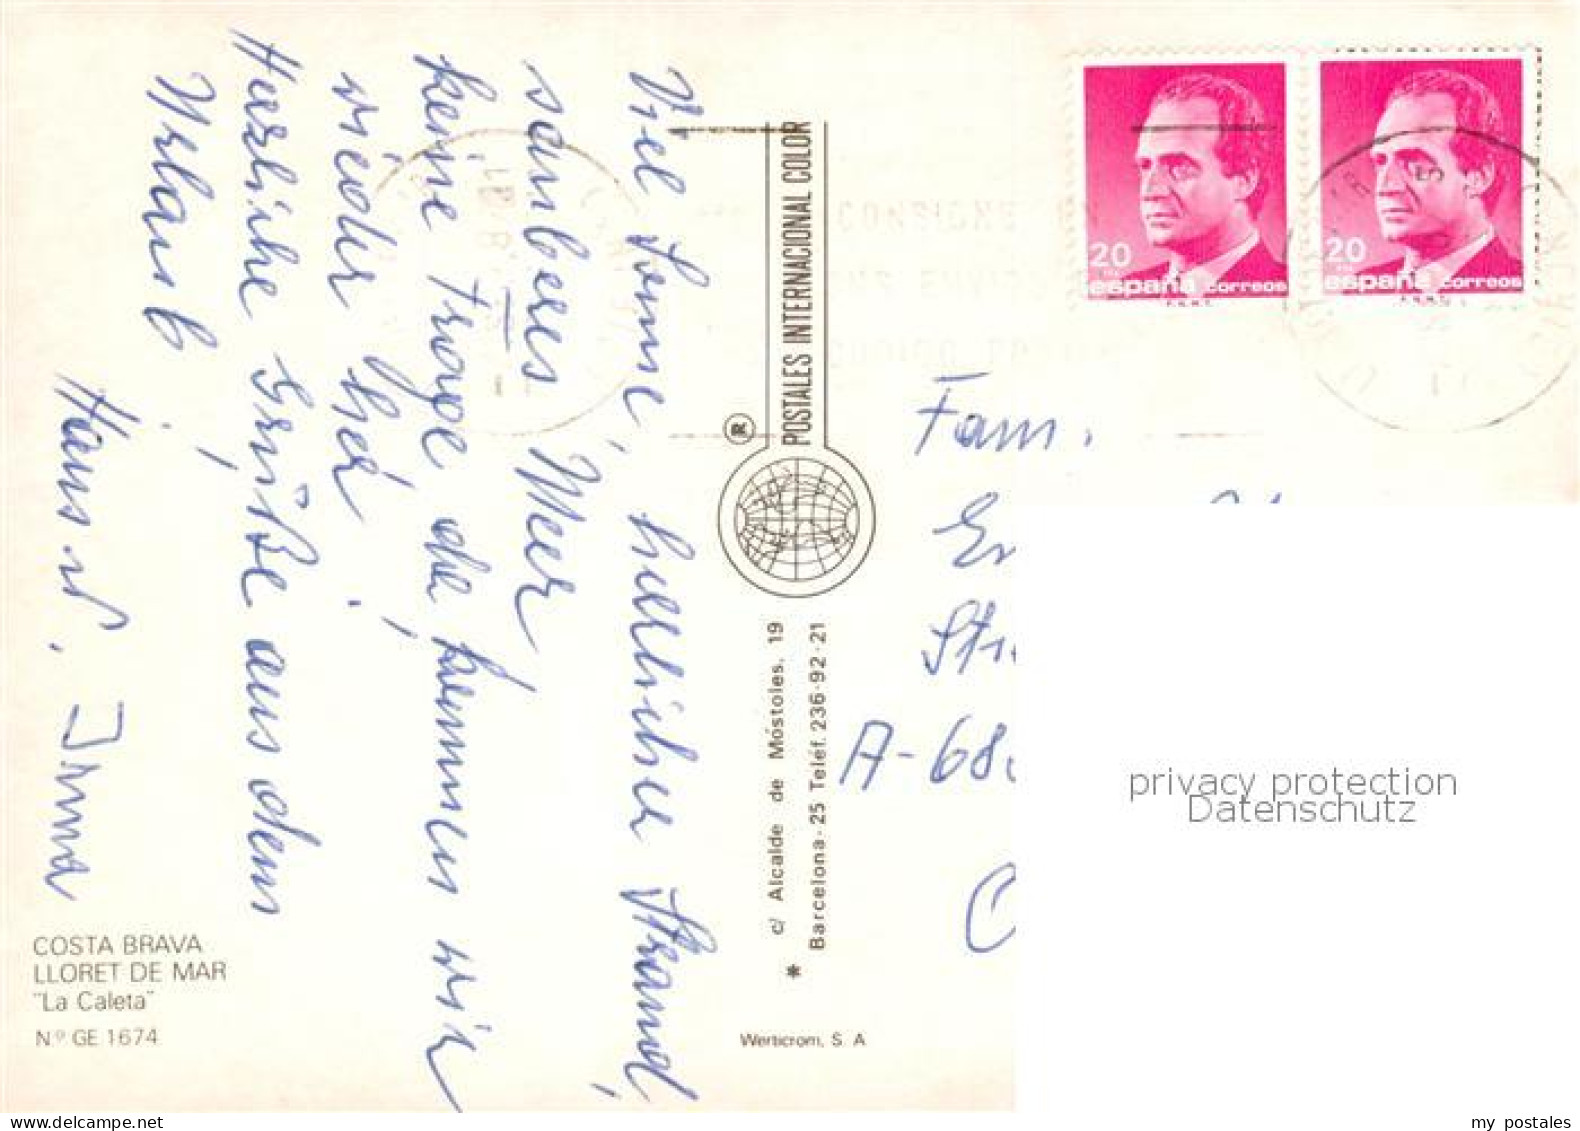 Viel Sonne, herrlicher Strand,
sauberes Meer
keine Frage da kommen wir
wieder her.
Herzliche Grüße aus dem
Urlaub,
Hans u. Irma
COSTA BRAVA
LLORET DE MAR
"La Caleta"
N.º GE 1674
POSTALES INTERNACIONAL COLOR
®
c/ Alcalde de Móstoles, 19
Barcelona-25 Teléf. 236-92-21
*
Werticrom, S. A
20
españa correos
20
españa correos
Fam.
Str.
A-68
privacy protection
Datenschutz
my postales